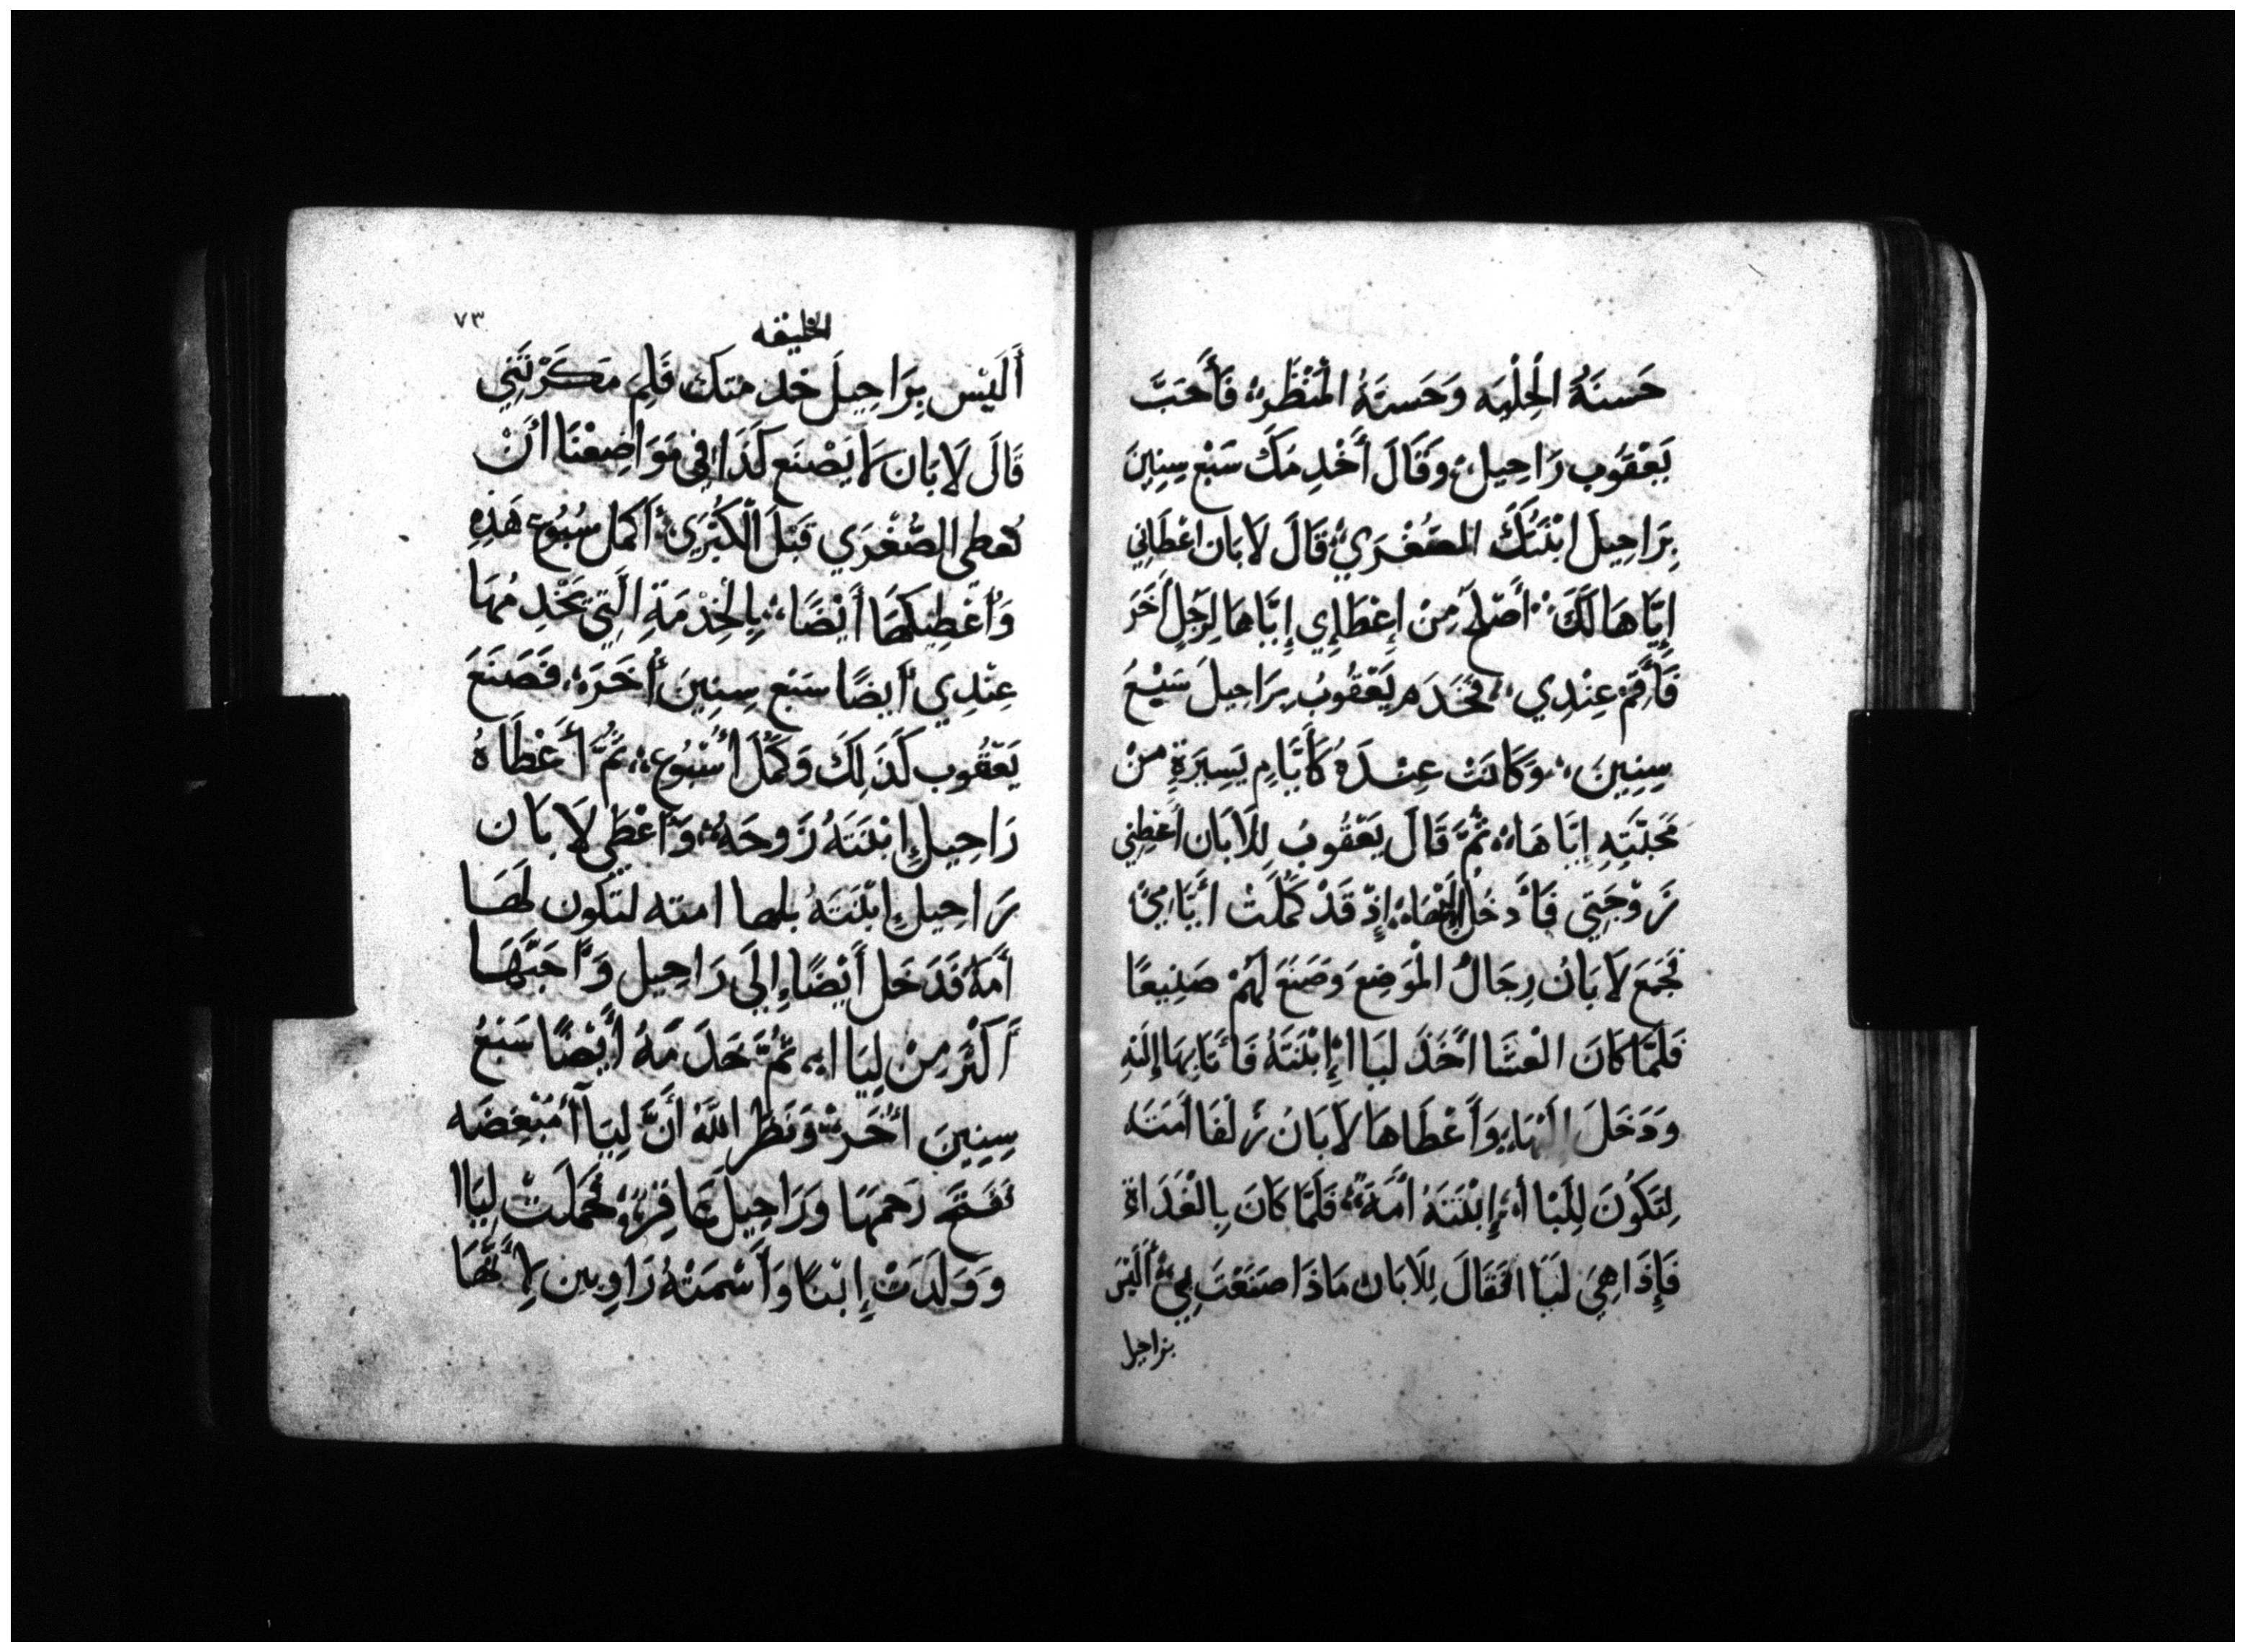 حَسنَةُ الْحِلْيَه وَحَسنَةُ الْمَنْظَرِ فَأَحَبَّ
يَعْقُوب رَاحِيلْ وَقَالَ أَخْدِمُكَ سَبْع سِنِينَ
بِرَاحِيلَ ابْنَتُكَ الصُّغْرَي قَالَ لَابَان اعْطَائي
إِيَّاهَا لَكَ أَصْلَحُ مِنْ إِعْطَاإِي إِيَّاهَا لِرَجُلٍ أَخَرَ
فَأَقِمْ عِنْدِي فَخَدَم يَعْقُوبُ بِرَاحِيلَ سَبْعَ
سِنِينَ وَكَانَتْ عِنْدَهُ كَأَيَّامٍ يَسِيرَةٍ مِنْ
مَحَبَّتِهِ إِيَّاهَا ثُمَّ قَالَ يَعْقُوبُ لِلَابَان أَعْطِنِي
زَوْجَتِي فَأَدخُل إِلَيْهَا إِذْ قَدْ كَمُلَتْ أَيَّامِيْ
فَجَمَع لَابَانُ رِجَالُ الْمَوضِعَ وَصَنَعَ لَهُمْ صَنِيعًا
فَلَمَّا كَانَ الْعَشَا أَخَذَ لَيَاا إِبْنَتَهُ فَأَتَا بِهَا إِلَيْهِ
وَدَخَلَ إِلَيْهَا وَأَعْطَاهَا لَابَانُ زلْفَا أَمَتَه
لِتَكُونَ لِلَيَاأ إِبْنَتَهُ أَمَةً فَلَمَّا كَانَ بِالْغَدَاةِ
فَإِذَا هِيَ لَيَاا فَقَالَ لِلَابَان مَاذَا صَنَعْتَ بِيْ أَلَيْسَ
بزاحيل
٧٣
الخليقه
أَلَيْس بِرَاحِيلَ خدمتك فَلِم مَكَرْتَنِي
قَالَ لَابَان لَا يَصْنَع كَذَا فِي مَوَاضِعْنَا أَنْ
تُعطى الصُّغْرَي قَبْلَ الْكُبْرَي أَكمل سُبُوع هَذِهِ
وَأُعْطِيكهَا أَيْضًا بِالْخِدْمَةِ الَّتِي تَخْدِمُهَا
عِنْدِي أَيضًا سَبْع سِنِينَ أُخَرَه فَصَنَعَ
يَعْقُوب كَذَلِكَ وَكَمَّلَ أُسْبُوع ثُمَّ أَعْطَاهُ
رَاحِيل إِبْنَتَهُ زَوجَهُ وَأَعْطَي لَابَان
رَاحِيل إِبْنَتَهُ بلها امته لتكون لَهَا
أَمَهً فَدَخَل أَيْضًا إِلَي رَاحِيل وَأَحَبَّهَا
أَكْثَر مِنْ لِيَاا ثُمَّ خَدَمَهُ أَيْضًا سَبْعُ
سِنِينَ أُخَر وَنَظَر اللَّهُ أَنَّ لِيَاأ مُبْغِضَه
فَفَتَحَ رَحمهَا وَرَاحِيل عَاقِر وَحَمَلَتْ لِيَاا
وَوَلَدَتْ إِبْنًا وَأَسْمَتْهُ رَاوبين لِأَنَّهَا